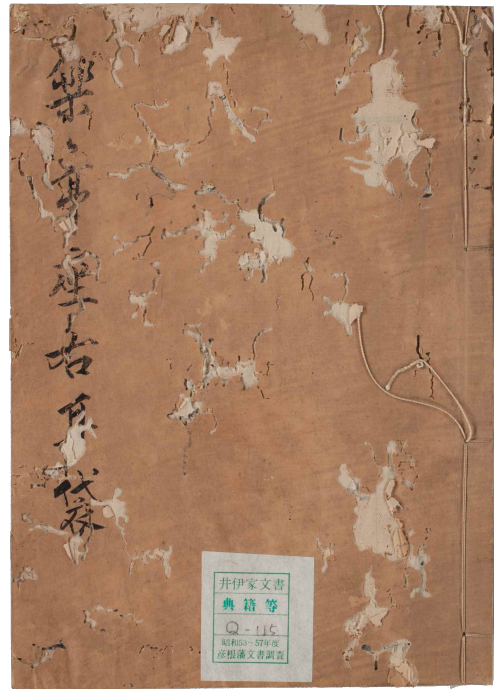 樂亭座右袋
井伊家文書
典籍等
Q-115
昭和53〜57年度
彦根藩文書調査